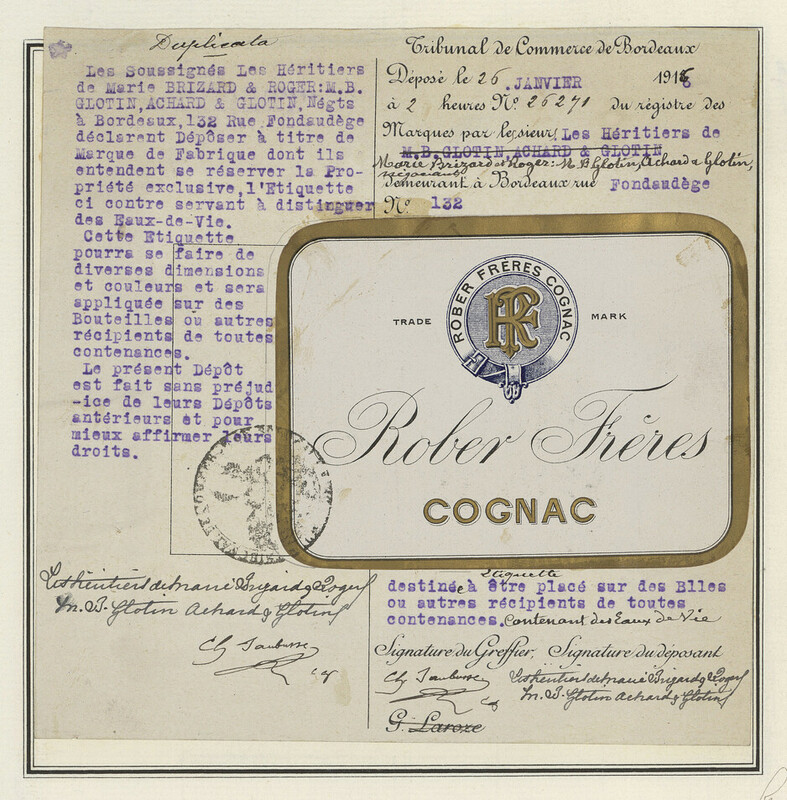 Duplicata
Les Soussignés Les Héritiers
de Marie BRIZARD & ROGER:M.B.
GLOTIN,ACHARD & GLOTIN,Négts
à Bordeaux,132 Rue Fondaudège
déclarent Déposer à titre de
Marque de Fabrique dont ils
entendent se réserver la Pro-
priété exclusive,l'Etiquette
ci contre servant à distinguer
des Eaux-de-Vie.
Cette Etiquette
pourra se faire de
diverses dimensions
et couleurs et sera
appliquée sur des
Bouteilles ou autres
récipients de toutes
contenances.
Le présent Dépôt
est fait sans préjud
-ice de leurs Dépôts
antérieurs et pour
mieux affirmer leurs
droits.
Les héritiers de Marie Brizard & Roger
M. B. Glotin Achard & Glotin
Tribunal de Commerce de Bordeaux
Déposé le 26 JANVIER 1916
à 2 heures Nº 26271 du régistre des
Marques par les sieurs Les Héritiers de
M.B.GLOTIN,ACHARD & GLOTIN
Marie Brizard et Roger: M. B. Glotin, Achard & Glotin,
négociants
demeurant à Bordeaux rue Fondaudège
Nº 132
ROBER FRÈRES COGNAC
RF
TRADE MARK
Rober Frères
COGNAC
Etiquette
destinée à être placé sur des Blles
ou autres récipients de toutes
contenances. Contenant des Eaux de Vie
Signature du Greffier, Signature du déposant
Les héritiers de Marie Brizard & Roger
M. B. Glotin Achard & Glotin
G. Laroze